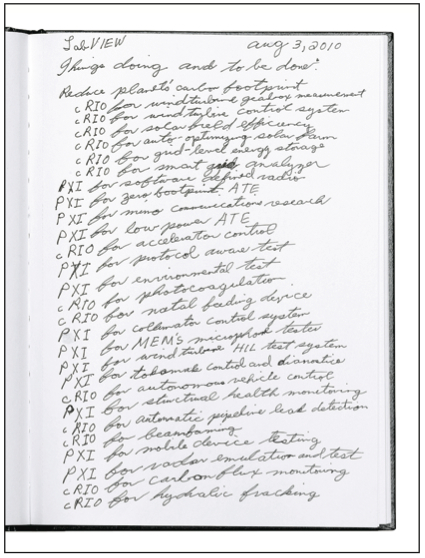 LabVIEW
aug 3, 2010
Things doing and to be done:
Reduce planets' carbo footprint
cRIO for windturbine gearbox measurement
cRIO for windturbine control system
cRIO for solar field efficiency
cRIO for auto optimizing solar farm
cRIO for grid-level energy storage
cRIO for smart grid analyzer
PXI for software defined radio
PXI for zero footprint ATE
PXI for mimo communications research
PXI for low power ATE
cRIO for accelerator control
PXI for protocol aware test
PXI for environmental test
cRIO for photocoagulation
cRIO for natal feeding device
PXI for collimator control system
PXI for MEMS microphone tester
PXI for windturbine HIL test system
PXI for tokamak control and diagnostics
cRIO for autonomous vehicle control
PXI for structural health monitoring
cRIO for automatic pipeline leak detection
cRIO for beamforming
PXI for mobile device testing
PXI for radar emulation and test
cRIO for carbon flux monitoring
cRIO for hydralic fracking